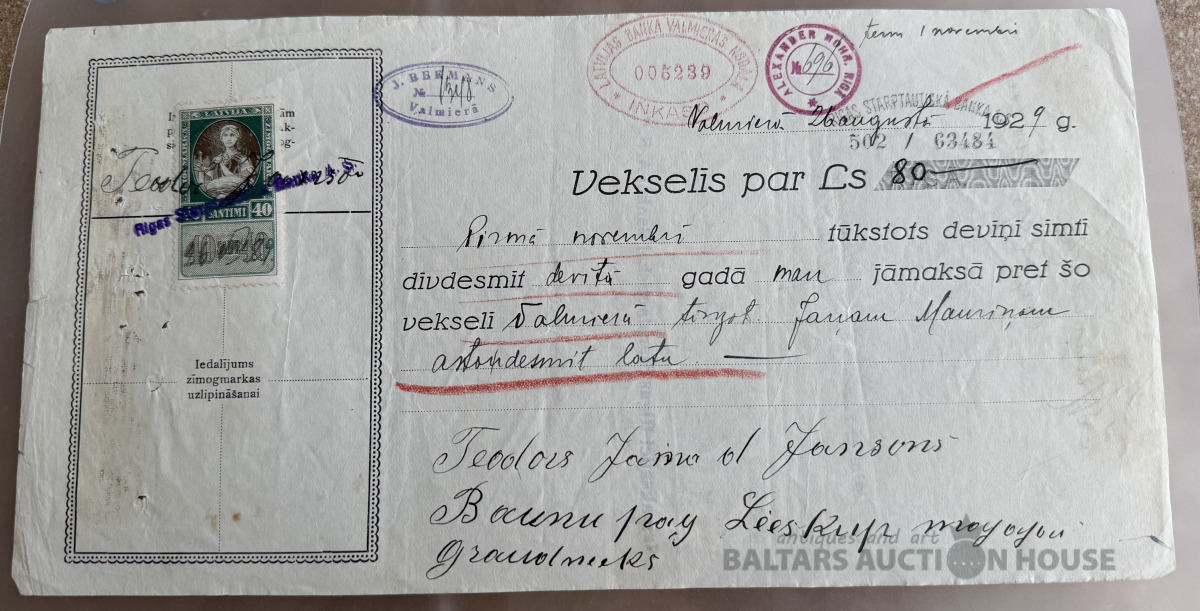 term 1 novembri
LATVIJAS BANKA VALMIERAS NODAĻA
006239
INKASO
ALEXANDER MOHR, RIGA
№ 696
J. BERMANS
№
Valmierā
Valmierā 26 augustā 1929 g.
STARPTAUTISKĀ BANKA
502 / 63484
Vekselis par Ls 80
LATVIJA
SANTIMI 40
Teodors
Rigas
Banka A. S.
Pirmā novembrī tūkstots deviņi simti
divdesmit devītā gadā man jāmaksā pret šo
vekseli Valmierā tirgot. Jānam Mauriņam
astoņdesmit latu
Iedalījums
zīmogmarkas
uzlipināšanai
Teodors Jāņa d Jansons
Baunu pag
Graudnieks
antiques and art
BALTARS AUCTION HOUSE